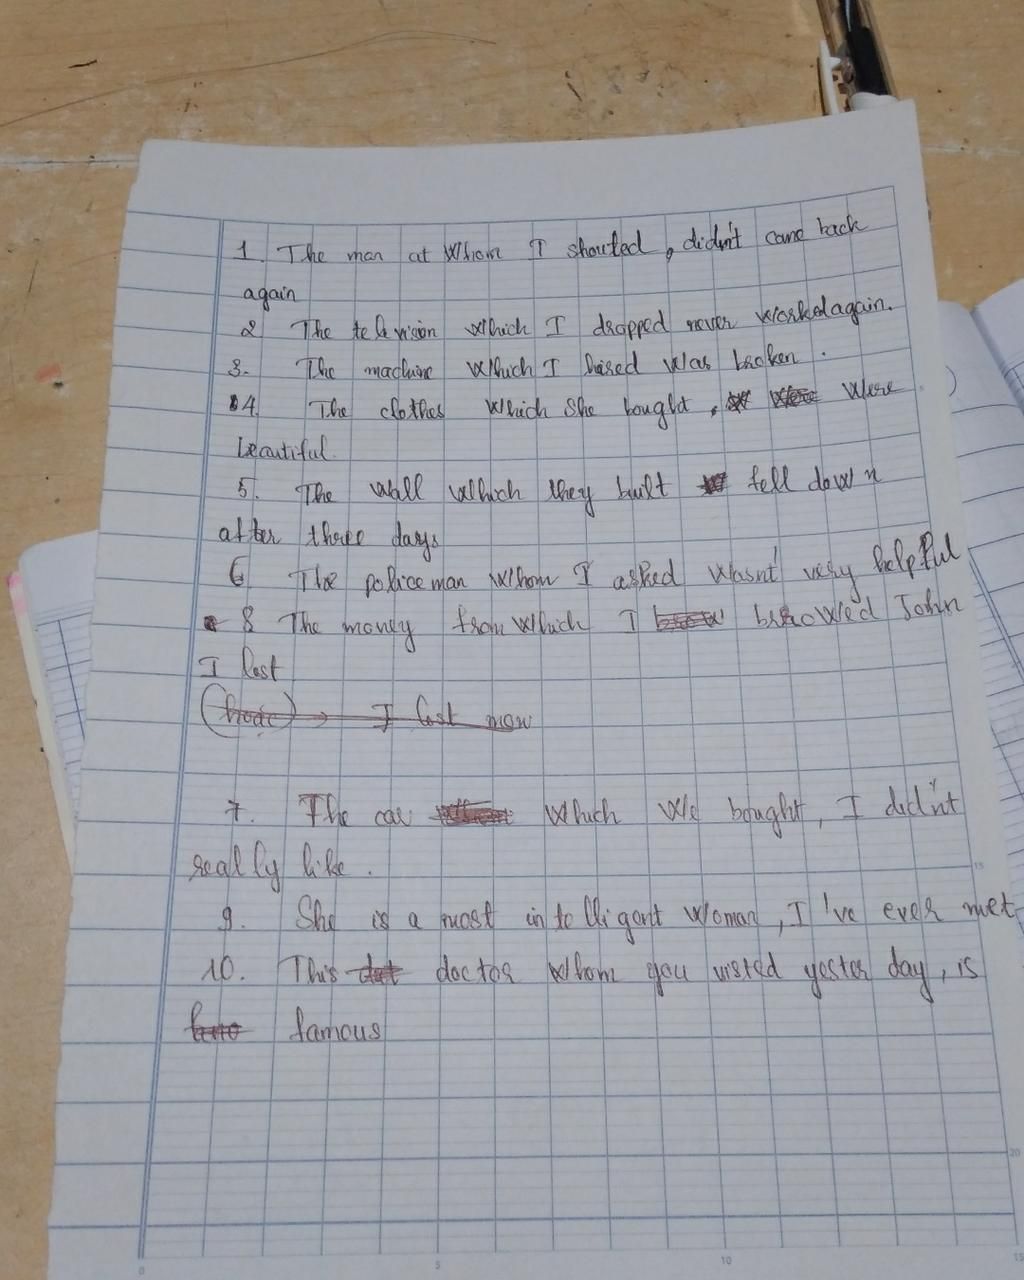 1. The man at whom I shouted, didn't came back
again
2 The television which I dropped never worked again.
3. The machine which I hired was broken.
4. The clothes which she bought, were
beautiful.
5. The wall which they built fell down
after three days
6 The police man whom I asked wasn't very helpful
8 The money from which I browed John
I lost
I lost now
7. The car which we bought, I did'nt
really like.
9. She is a most intelligent woman, I've ever met
10. This doctor whom you visted yester day, is
famous
15
20
0 5 10 15